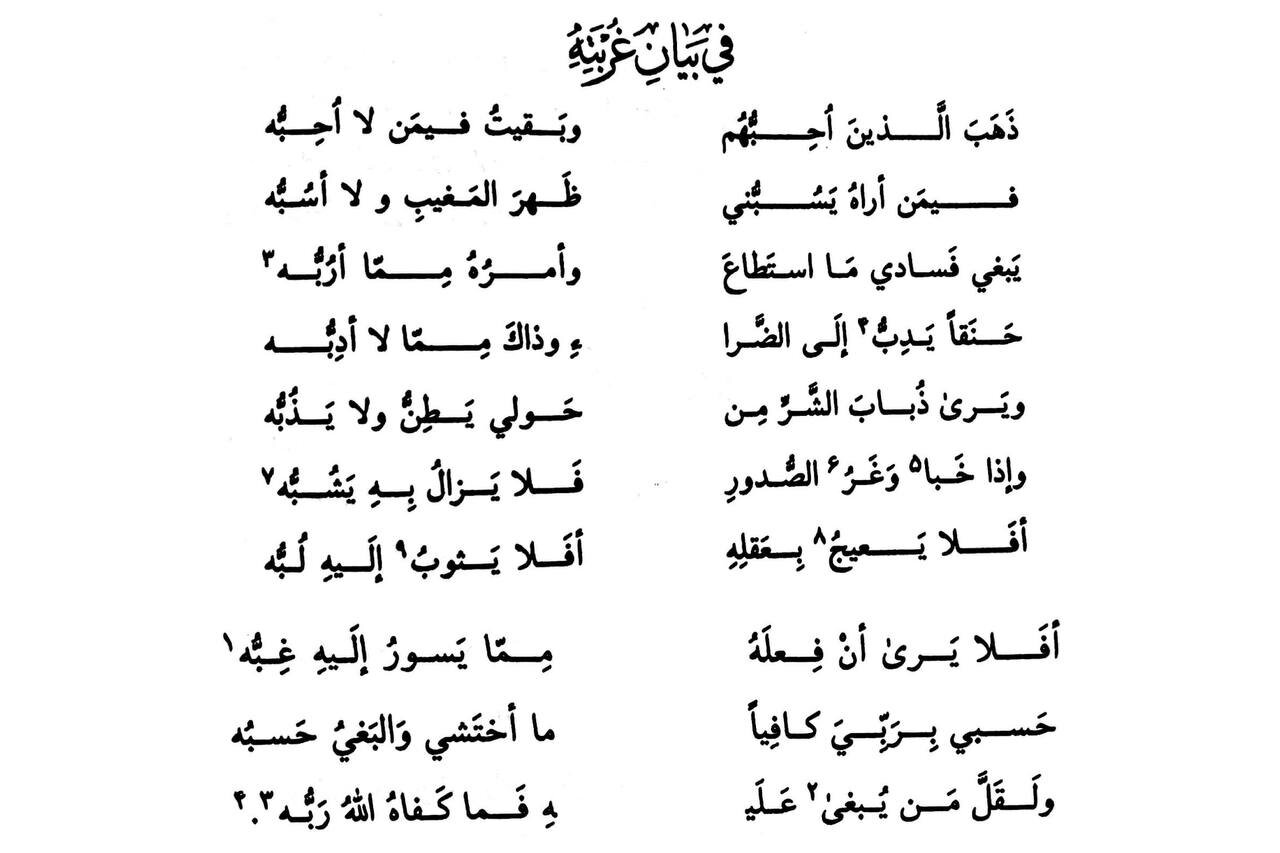 في بَيَانِ غُرْبَتِهِ
ذَهَبَ الَّذينَ اُحِبُّهُم وبَقيتُ فيمَن لا اُحِبُّه
فيمَن أراهُ يَسُبُّني ظَهرَ المَغيبِ و لا أسُبُّه
يَبغي فَسادي مَا استَطاعَ وأمرُهُ مِمّا أرُبُّه۳
حَنَقاً يَدِبُّ۴ إلَى الضَّرا ءِ وذاكَ مِمّا لا أدِبُّه
ويَرىٰ ذُبابَ الشَّرِّ مِن حَولي يَطِنُّ ولا يَذُبُّه
وإذا خَبا۵ وَغَرُ۶ الصُّدورِ فَلا يَزالُ بِهِ يَشُبُّه۷
أفَلا يَعيجُ۸ بِعَقلِهِ أفَلا يَثوبُ۹ إلَيهِ لُبُّه
أفَلا يَرىٰ أنْ فِعلَهُ مِمّا يَسورُ إلَيهِ غِبُّه۱
حَسبي بِرَبِّيَ كافِياً ما أختَشي وَالبَغيُ حَسبُه
ولَقَلَّ مَن يُبغىٰ۲ عَلَيـ ـهِ فَما كَفاهُ اللهُ رَبُّه۳.۴